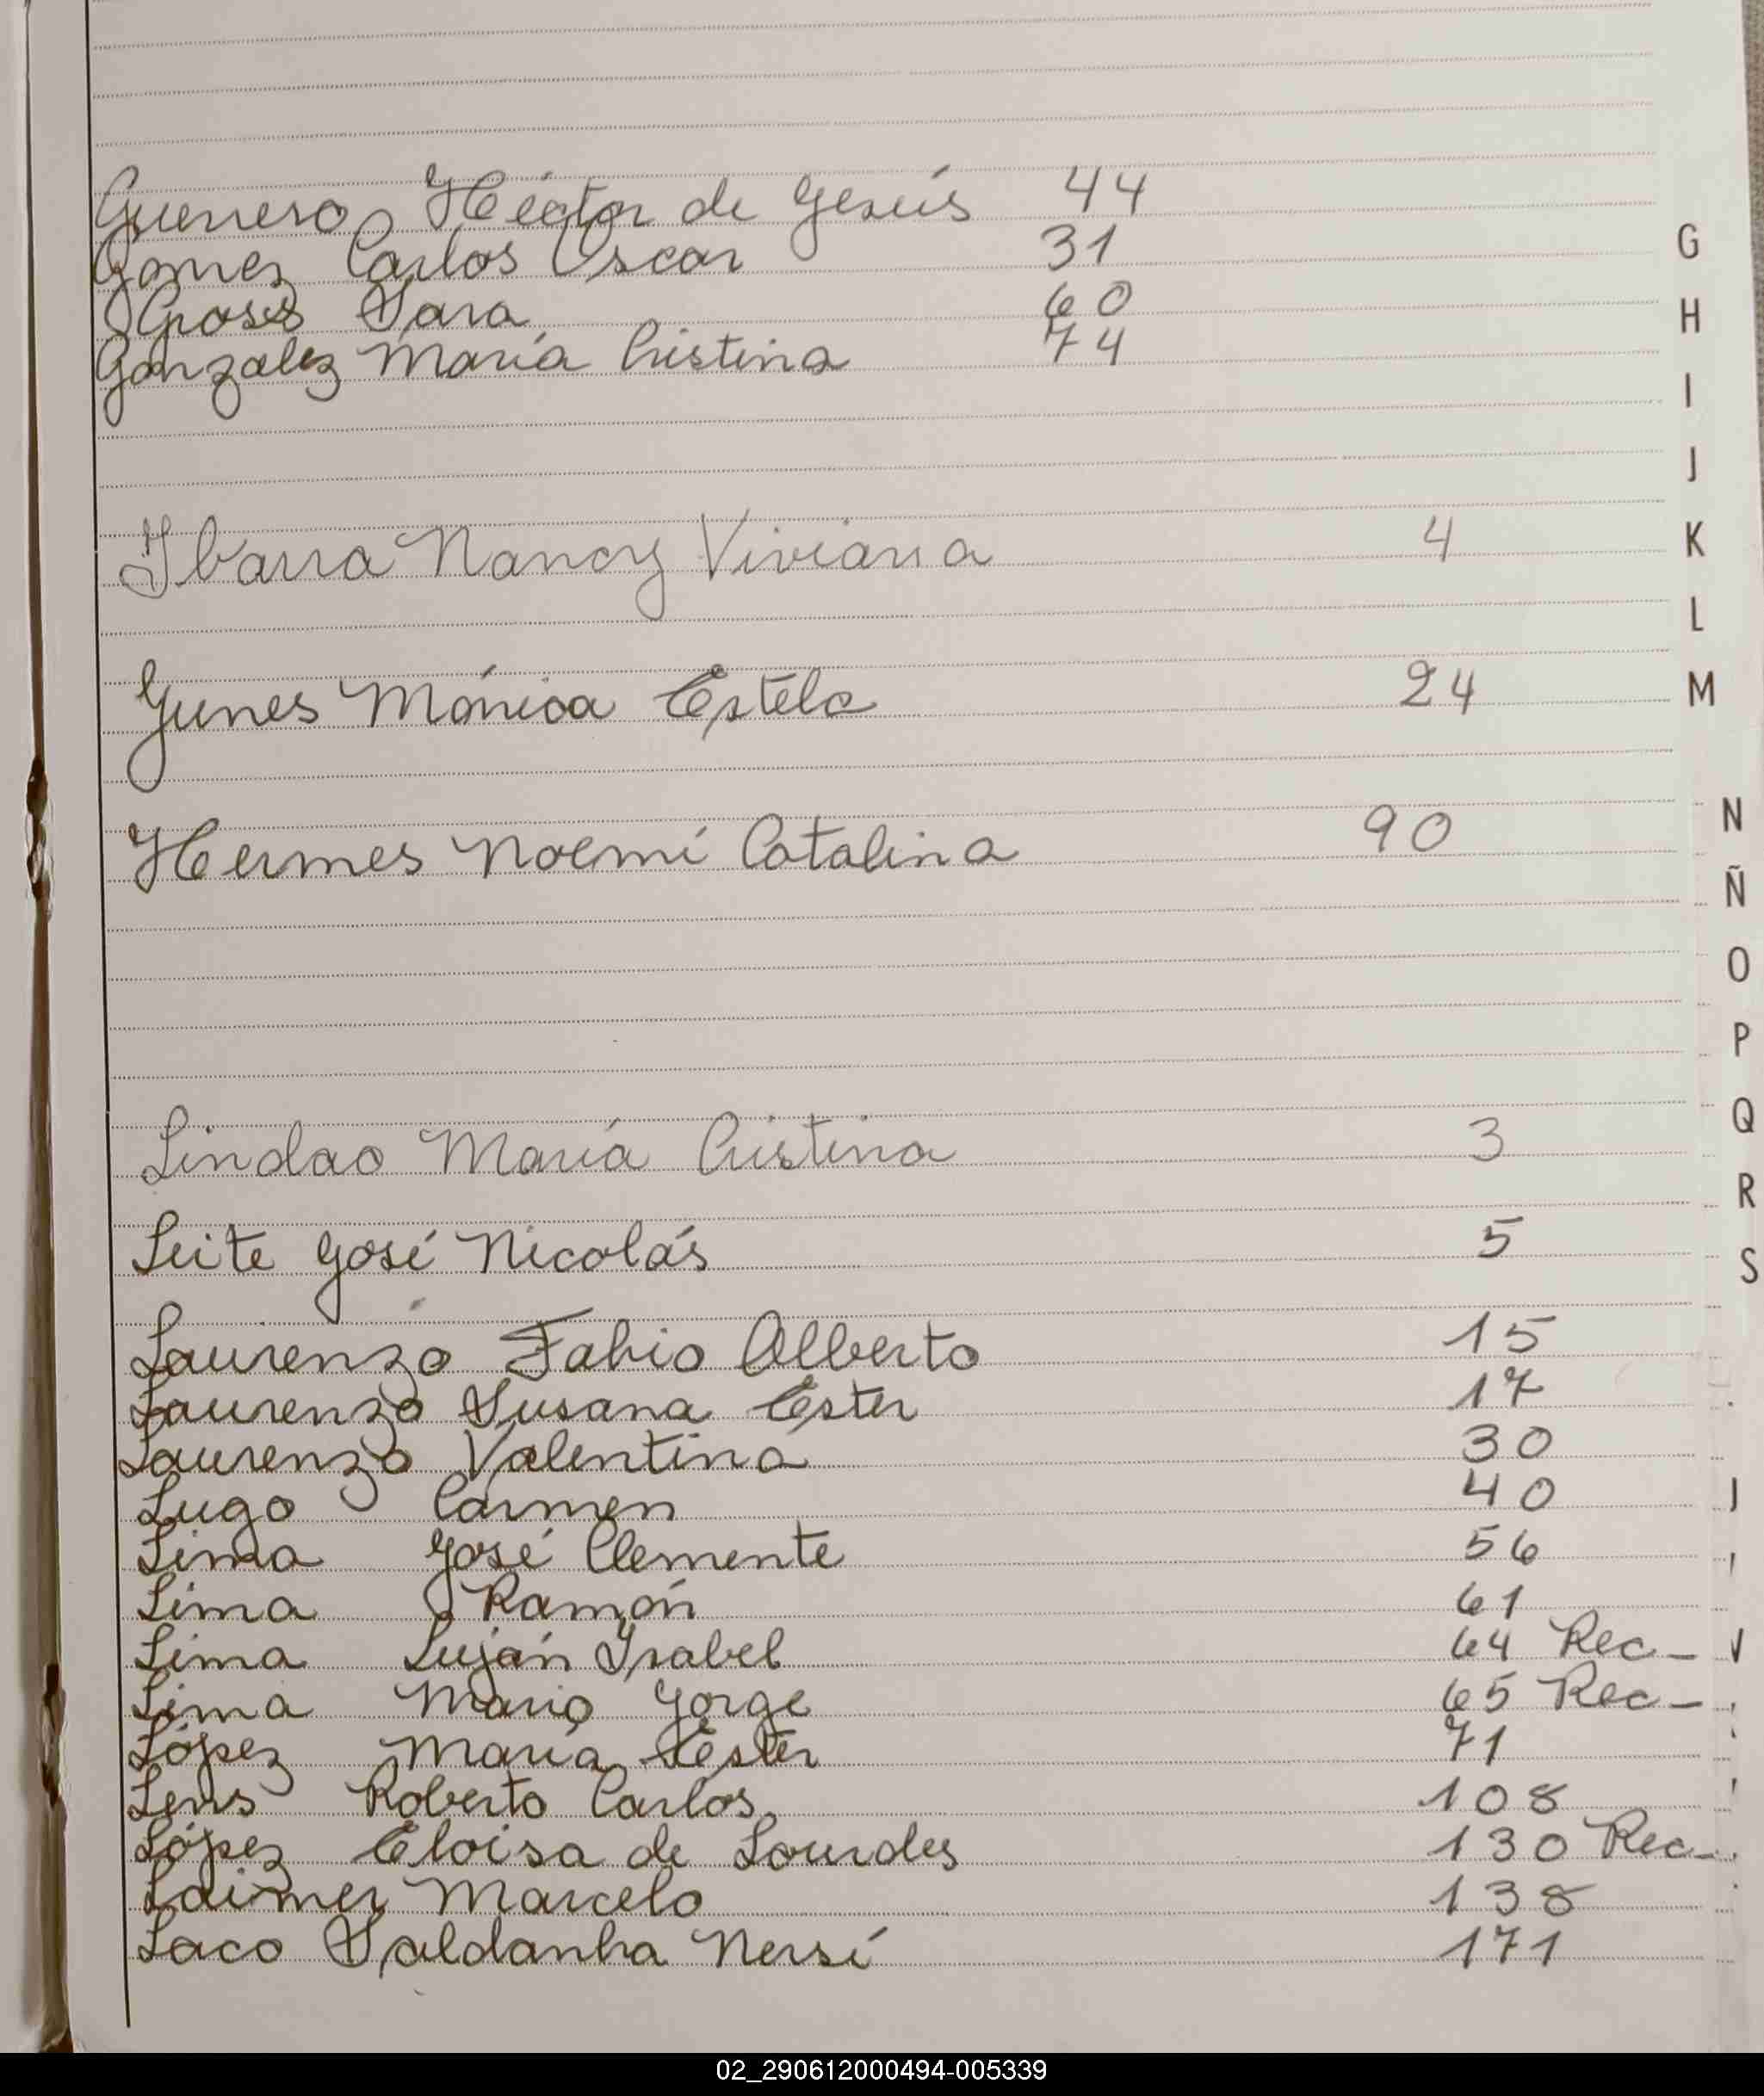 Guerrero Héctor de Jesús 44
Gomez Carlos Oscar 31
Sara 60
Gonzalez María Cristina 74
G
H
I
J
Ibarra Nancy Viviana 4
K
L
Yunes Mónica Estela 24
M
Hermes Noemí Catalina 90
N
Ñ
O
P
Q
Lindao María Cristina 3
R
Leite José Nicolás 5
S
Laurenzo Fabio Alberto 15
Laurenzo Susana Ester 17
Laurenzo Valentina 30
Lugo Carmen 40
Lima José Clemente 56
Lima Ramón 61
Lima Luján Isabel 64 Rec-
Lima Mario Jorge 65 Rec-
López María Ester 71
Lens Roberto Carlos 108
López Eloisa de Lourdes 130 Rec-
Laimer Marcelo 138
Laco Saldanha Nersí 171
02_290612000494-005339